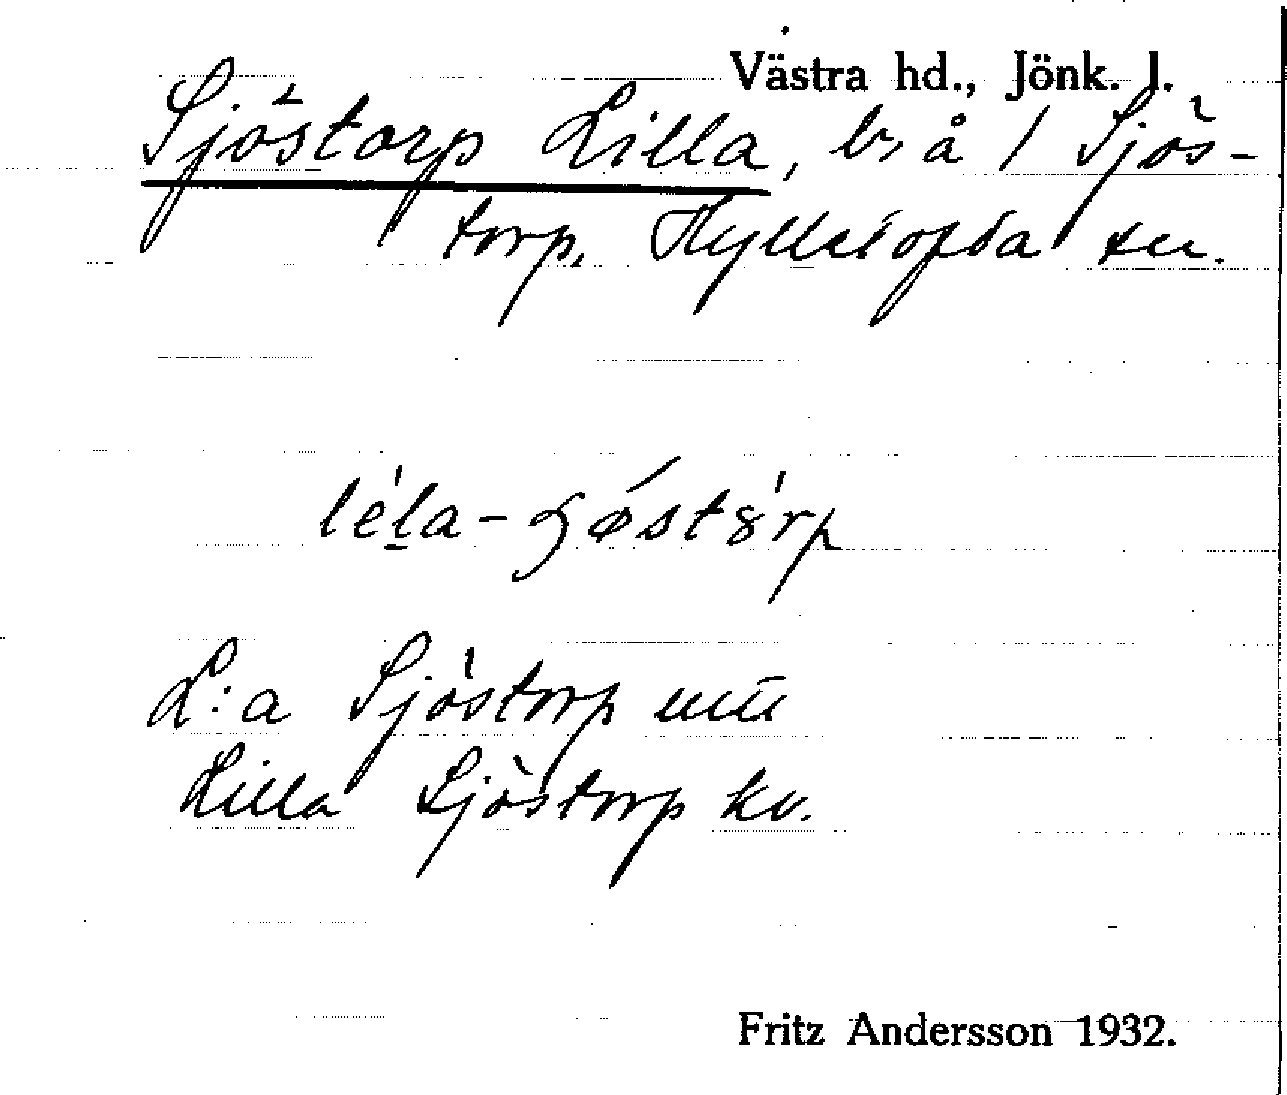 Västra hd., Jönk. l.
Sjöstorp Lilla, b, å / Sjös-
torp, Hylletofta sn.
L:a Sjöstorp
Lilla Sjöstorp kv.
Fritz Andersson 1932.